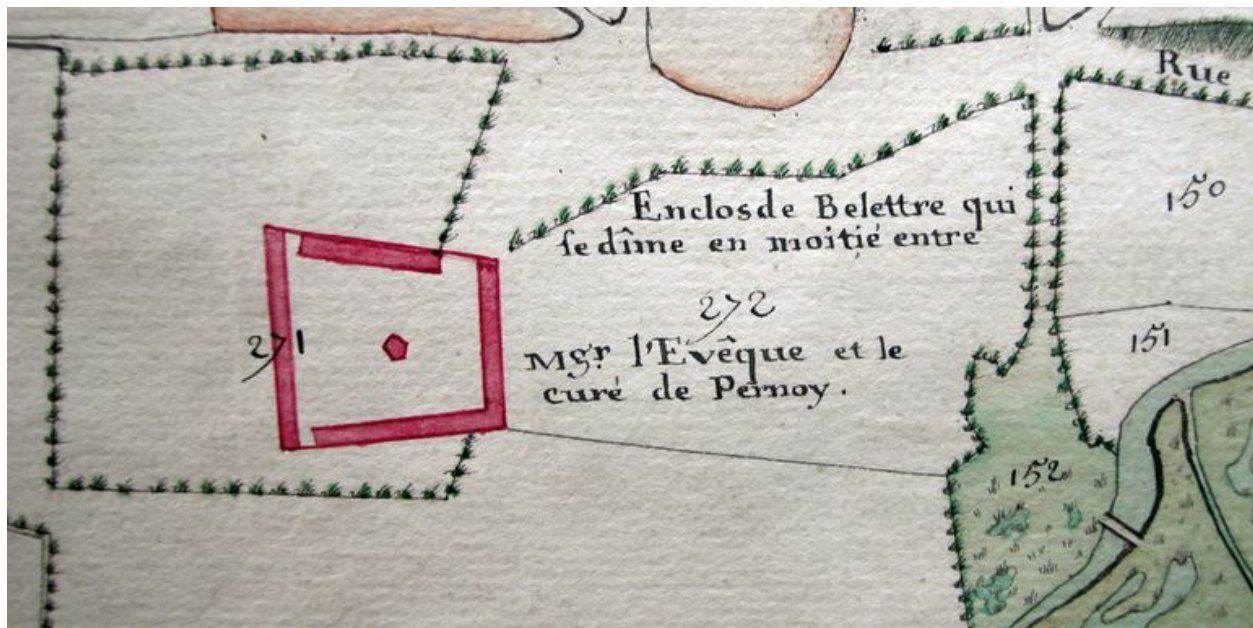 Rue
150
Enclos de Belettre qui
se dîme en moitié entre
272
271
Mgr. l'Evêque et le
151
curé de Pernoy.
152